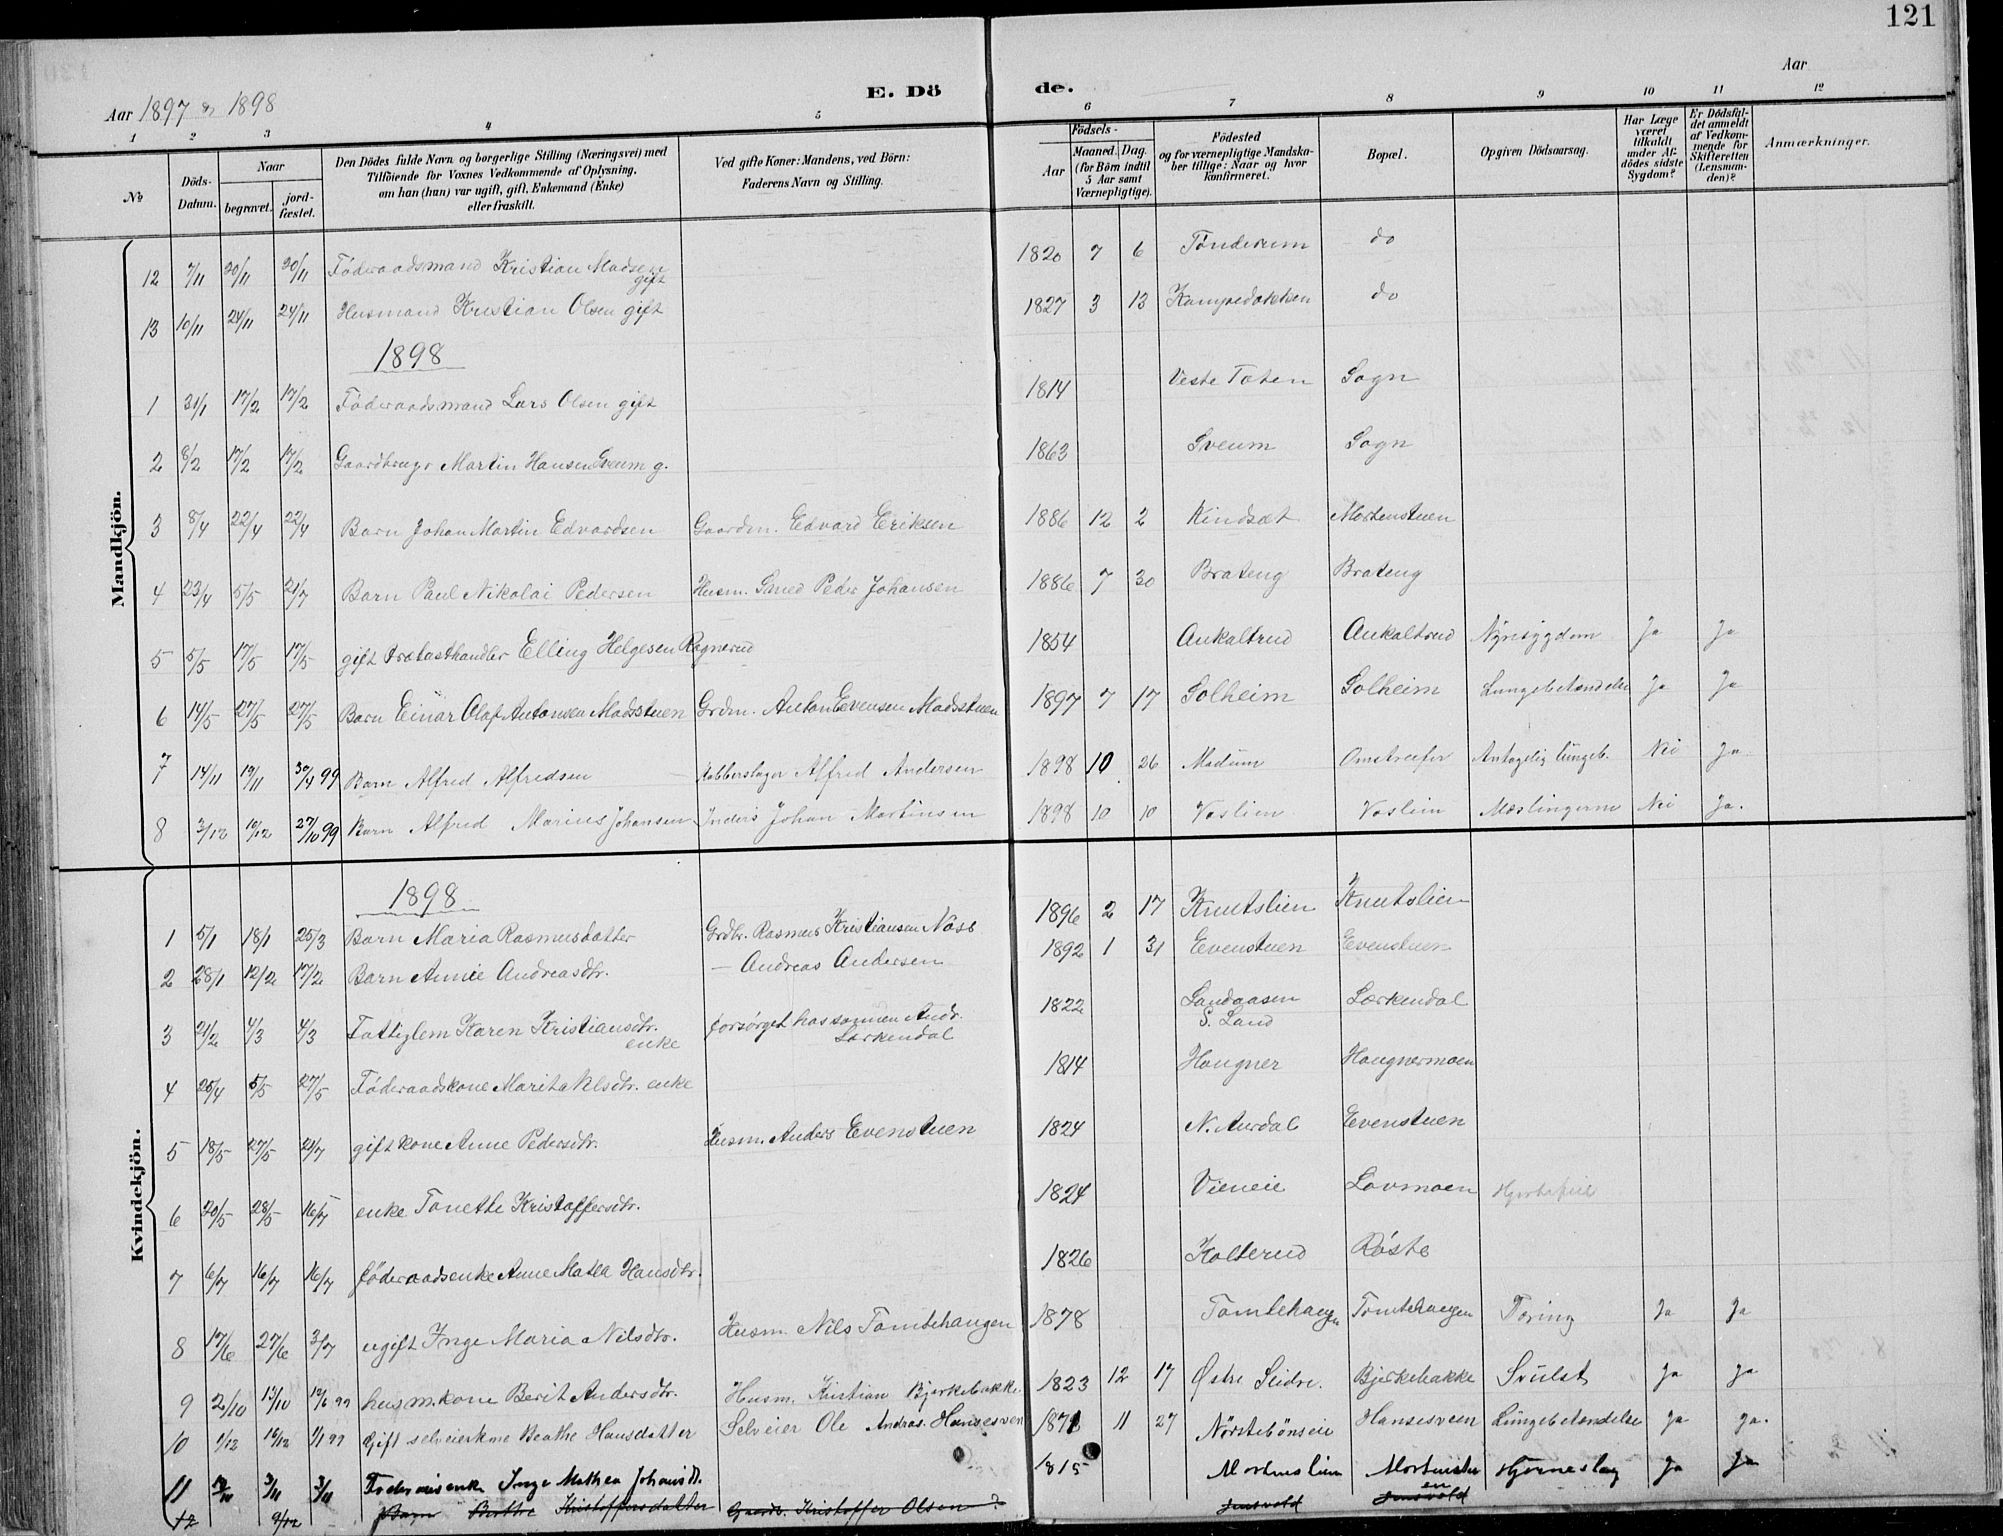 121
Aar 1897 & 1898
E. Dö de.
Aar
1 2 3 4 5 6 7 8 9 10 11 12
No
Döds-Datum.
Naar
begravet.
jord-fæstet.
Den Dödes fulde Navn og borgerlige Stilling (Næringsvei) med
Tilföiende for Voxnes Vedkommende af Oplysning,
om han (hun) var ugift, gift, Enkemand (Enke)
eller fraskilt.
Ved gifte Koner: Mandens, ved Börn:
Faderens Navn og Stilling.
Födsels-
Aar
Maaned. Dag.
(for Börn indtil
5 Aar samt
Værnepligtige).
Födested
og for værnepligtige Mandska-
ber tillige: Naar og hvor
konfirmeret.
Bopæl.
Opgiven Dödsaarsag.
Har Læge
været
tilkaldt
under Af-
dödes sidste
Sygdom?
Er Dödsfal-
det anmeldt
af Vedkom-
mende for
Skifteretten
(Lensman-
den)?
Anmærkninger.
Mandkjön.
12 7/11 20/11 20/11 Föderaadsmand Kristian Madsen gift 1820 7 6 Tönderum do
13 10/11 24/11 24/11 Husmand Kristian Olsen gift 1827 3 13 Kampedokken do
1898
1 31/1 17/2 17/2 Föderaadsmand Lars Olsen gift 1814 Vestre Toten Sogn
2 8/2 17/2 17/2 Gaardbruger Martin Hansen Sveum g. 1863 Sveum Sogn
3 8/4 22/4 22/4 Barn Johan Martin Edvardsen Gaardm. Edvard Eriksen 1886 12 2 Kindsæt Mortenstuen
4 23/4 5/5 21/7 Barn Paul Nikolai Pedersen Husm. Smed Peder Johansen 1886 7 30 Brateng Brateng
5 5/5 17/5 17/5 gift trælasthandler Elling Helgesen Ragnerud 1854 Aukaltrud Aukaltrud Nyresygdom Ja Ja
6 14/5 27/5 27/5 Barn Einar Olaf Antonsen Madsstuen Grdm. Anton Evensen Madsstuen 1897 7 17 Solheim Solheim Lungebetændelse Ja Ja
7 14/11 19/11 30/4 99 Barn Alfred Alfredsen Kobberslager Alfred Andersen 1898 10 26 Madum Omstreifer Antagelig lungeb. Nei Ja.
8 3/12 19/12 27/10 99 Barn Alfred Marius Johansen Inders Johan Martinsen 1898 10 10 Voslien Voslien Mæslingerne Nei Ja.
Kvindekjön.
1898
1 5/1 18/1 25/3 Barn Maria Rasmusdatter Grdbr. Rasmus Kristiansen Næss 1896 2 17 Knutslien Knutslien
2 28/1 12/2 17/2 Barn Annie Andreasdtr. — Andreas Andersen 1892 1 31 Evenstuen Evenstuen
3 21/2 4/3 4/3 Fattiglem Karen Kristiansdtr. enke forsörget hos sönnen Andr. Lærkendal 1822 Sandaasen S. Land Lærkendal
4 25/4 5/5 27/5 Föderaadskone Marit Nilsdtr. enke 1814 Haugner Haugnermoen
5 18/5 27/5 21/7 gift kone Anne Pedersdtr. Husm. Anders Evenstuen 1824 N. Aurdal Evenstuen
6 20/5 28/5 16/7 enke Tonette Kristoffersdtr. 1824 Vieneie Lovmoen Hjertefeil
7 6/7 16/7 16/7 föderaadsenke Anne Matea Hansdtr. 1826 Kolterud Röste
8 17/6 27/6 3/7 ugift Inge Maria Nilsdtr. Husm. Nils Tomtehaugen 1878 Tomtehaugen Tomtehaugen Tæring Ja Ja
9 2/10 13/10 12/6 99 husm.kone Berit Andersdtr. Husm. Kristian Bjerkebakke. 1823 12 17 Østre Slidre. Bjerkebakke Svulst Ja Ja
10 1/12 16/12 1/1 99 Gift selveierkone Beathe Hansdatter Selveier Ole Andras. Hansesveen 1871 11 27 Nörstebönseie Hansesveen Lungebetændelse Ja Ja.
11 3/11 3/11 Föderaadsenke Inge Mathea Johansdt. 1815 Mortenslien Hjerneslag Ja Ja
12 9/12 Barn Berthe Kristoffersdatter Gaardbr. Kristoffer Olsen ? Jensvold Jensvold